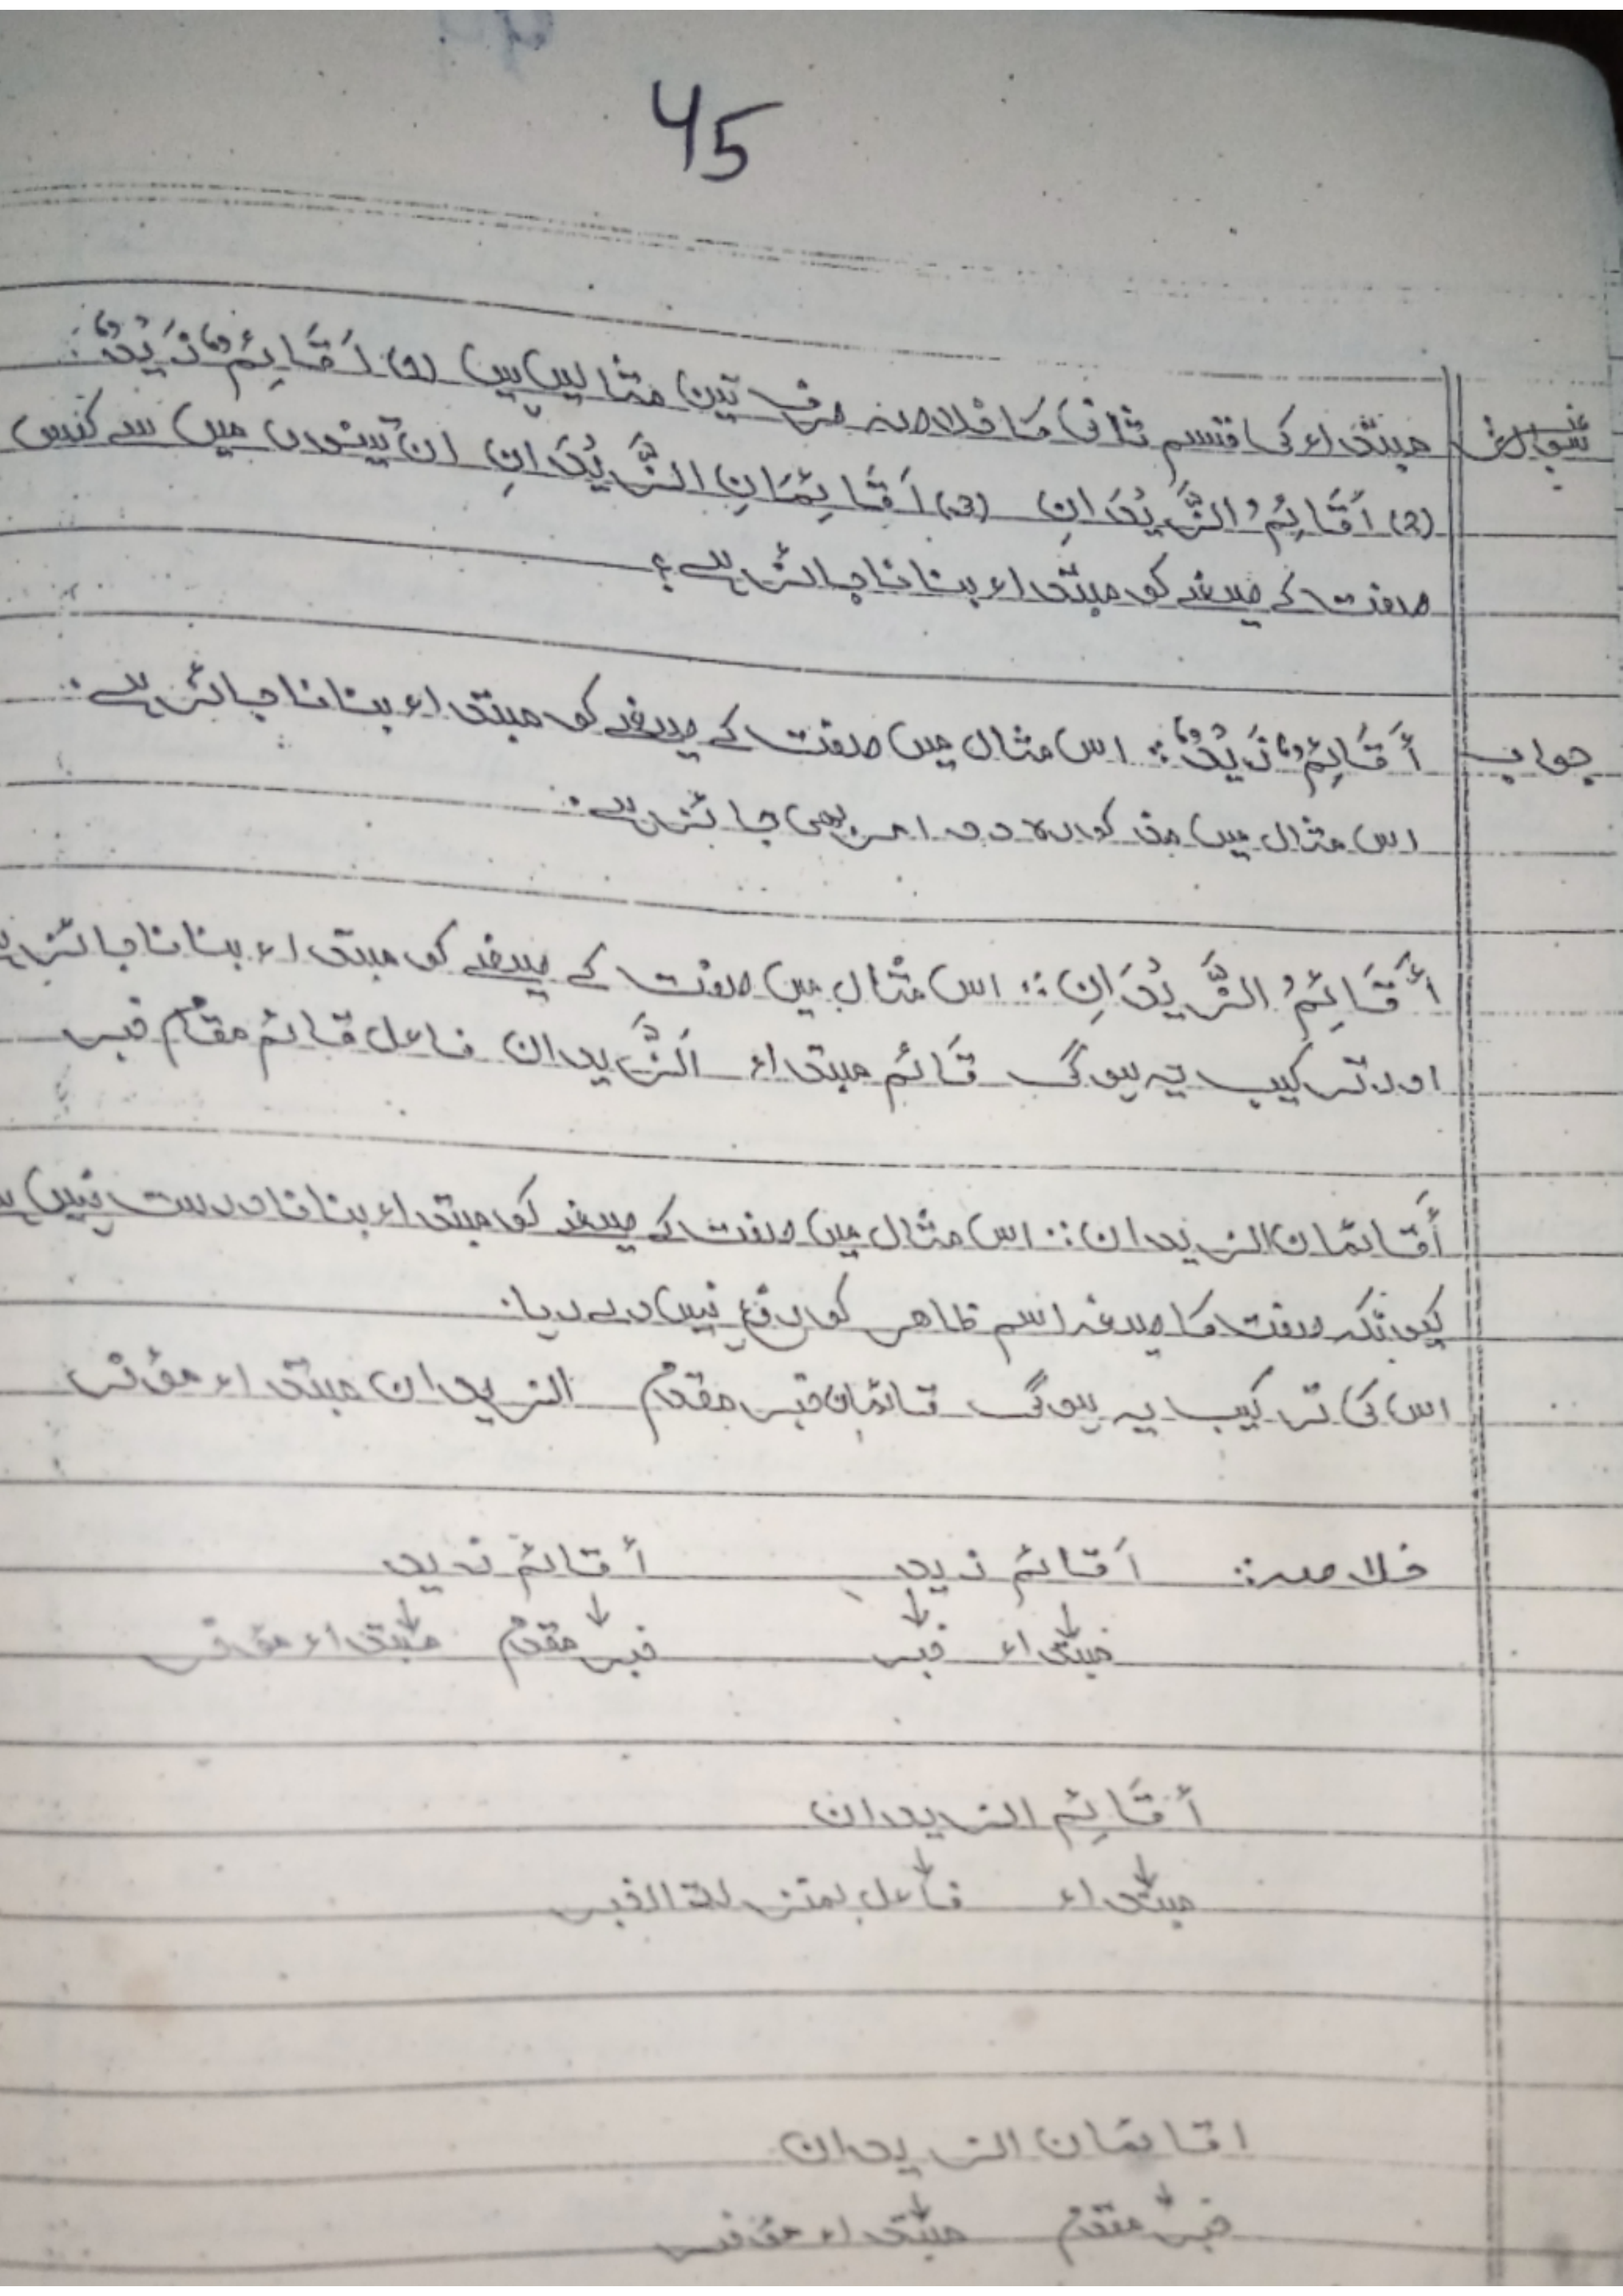 45
سوال مبتداء کی قسم ثانی کا خلاصہ صرف تین مثالیں ہیں (1) أَقَائِمٌ زَیْدٌ:
(2) أَقَائِمُ الزَّیْدَانِ (3) أَقَائِمَانِ الزَّیْدَانِ ان تینوں میں سے کس
صفت کے صیغے کو مبتداء بنانا جائز ہے؟
جواب أَقَائِمٌ زَیْدٌ: اس مثال میں صفت کے صیغے کو مبتداء بنانا جائز ہے.
اس مثال میں مذکورہ دو امر بھی جائز ہے.
أَقَائِمُ الزَّیْدَانِ: اس مثال میں صفت کے صیغے کو مبتداء بنانا جائز
اور ترکیب یہ ہوگی قَائم مبتداء اَلزَّیدان فاعل قائم مقام خبر
أَقائمان الزیدان: اس مثال میں صفت کے صیغہ کو مبتداء بنانا درست نہیں
کیونکہ صفت کا صیغہ اسم ظاھر کو رفع نہیں دے رہا.
اس کی ترکیب یہ ہوگی قائمان خبر مقدم الزیدان مبتداء مؤخر
خلاصہ: أَقائم زید أقائم زید
مبتداء خبر خبر مقدم مبتداء مؤخر
أقَائِم الزیدان
مبتداء فاعل بمنزلة الخبر
اقائمان الزیدان
خبر مقدم مبتداء مؤخر